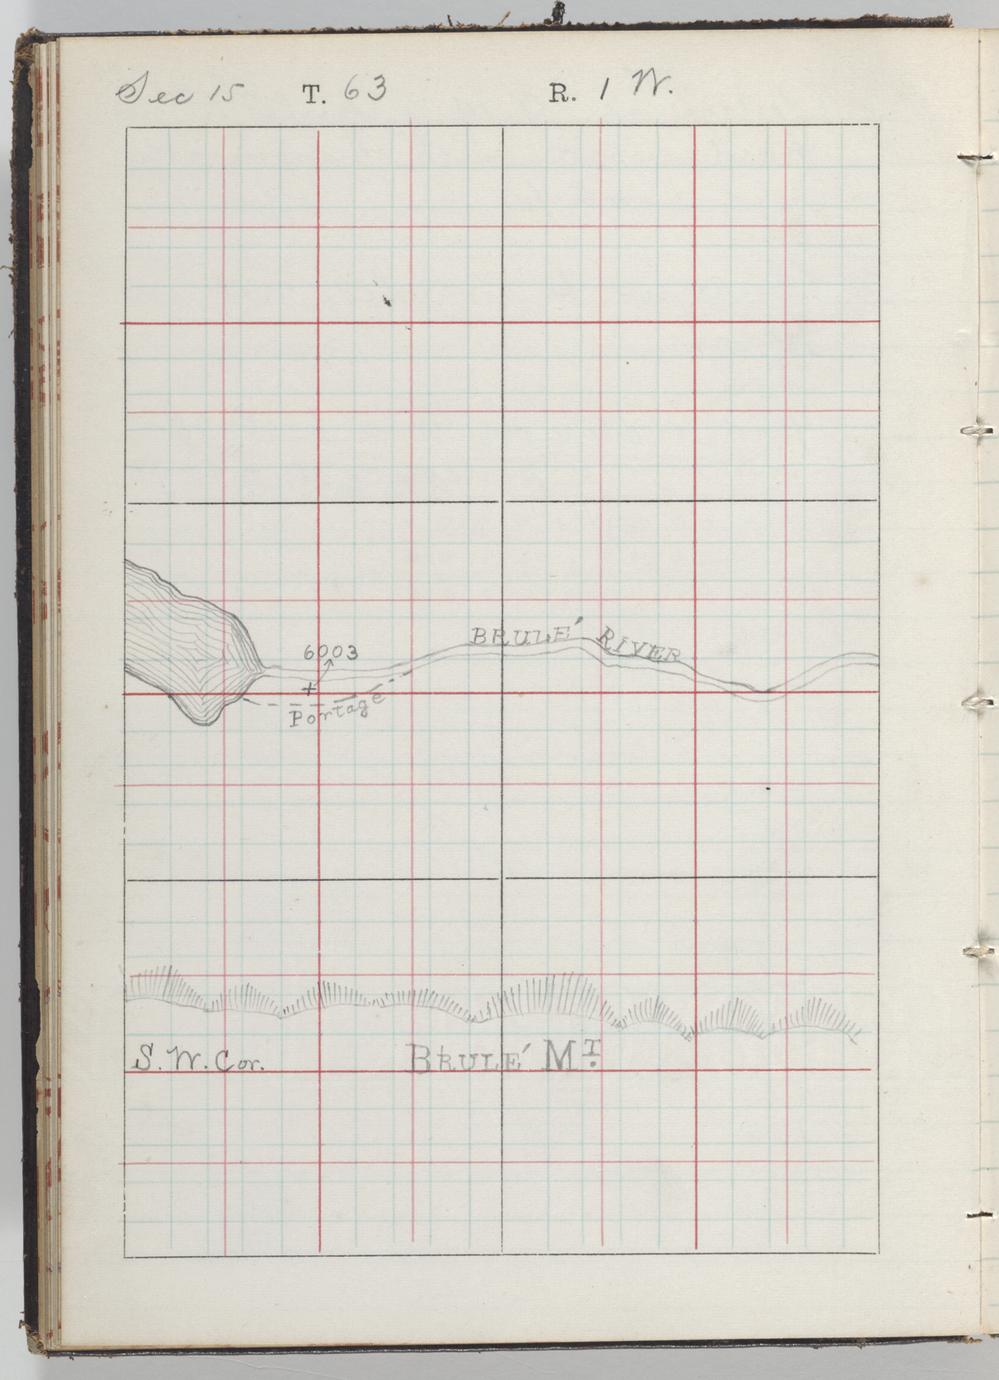 Sec 15 T. 63 R. 1 W.
BRULÉ RIVER
6003
Portage
S. W. Cor. BRULÉ MT.